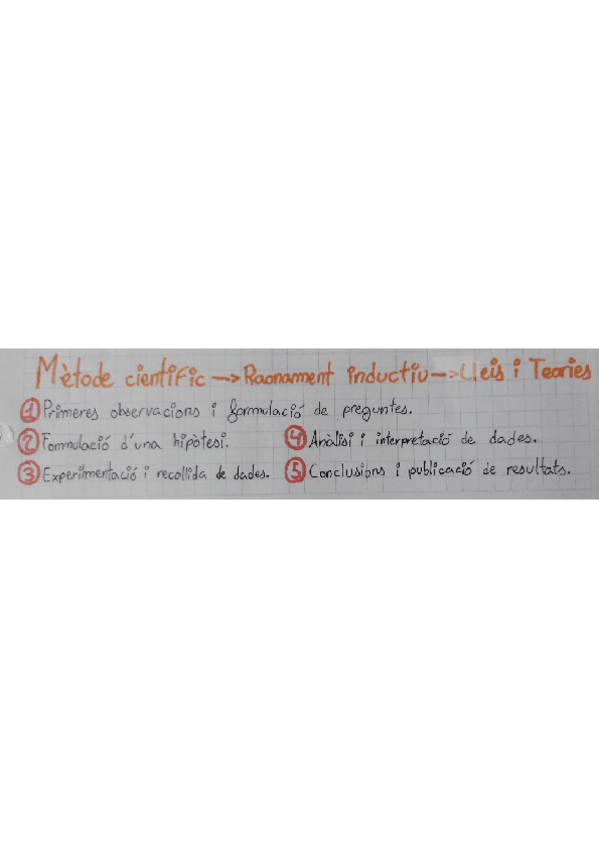 Mètode científic -> Raonament inductiu -> Lleis i Teories
① Primeres observacions i formulació de preguntes.
② Formulació d'una hipòtesi.
③ Experimentació i recollida de dades.
④ Anàlisi i interpretació de dades.
⑤ Conclusions i publicació de resultats.